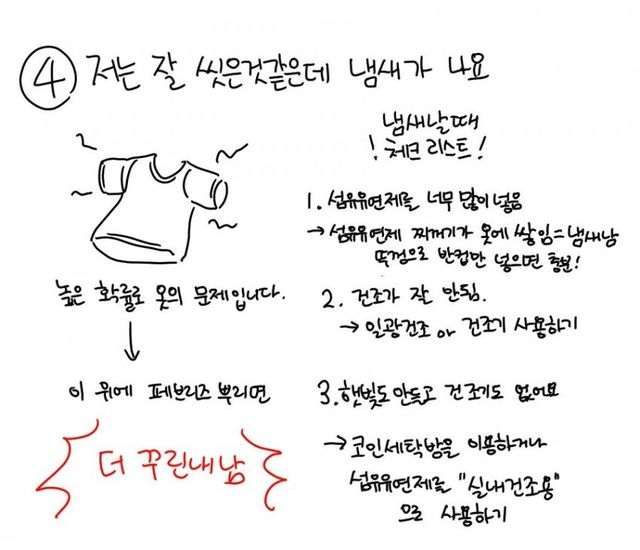 ④ 저는 잘 씻은것같은데 냄새가 나요
높은 확률로 옷의 문제입니다.
↓
이 위에 페브리즈 뿌리면
더 꾸린내남
냄새날때
! 체크리스트!
1. 섬유유연제를 너무 많이 넣음
→ 섬유유연제 찌꺼기가 옷에 쌓임=냄새남
뚜껑으로 반컵만 넣으면 충분!
2. 건조가 잘 안됨.
→ 일광건조 or 건조기 사용하기
3. 햇빛도 안들고 건조기도 없어요
→ 코인세탁방을 이용하거나
섬유유연제를 "실내건조용"
으로 사용하기